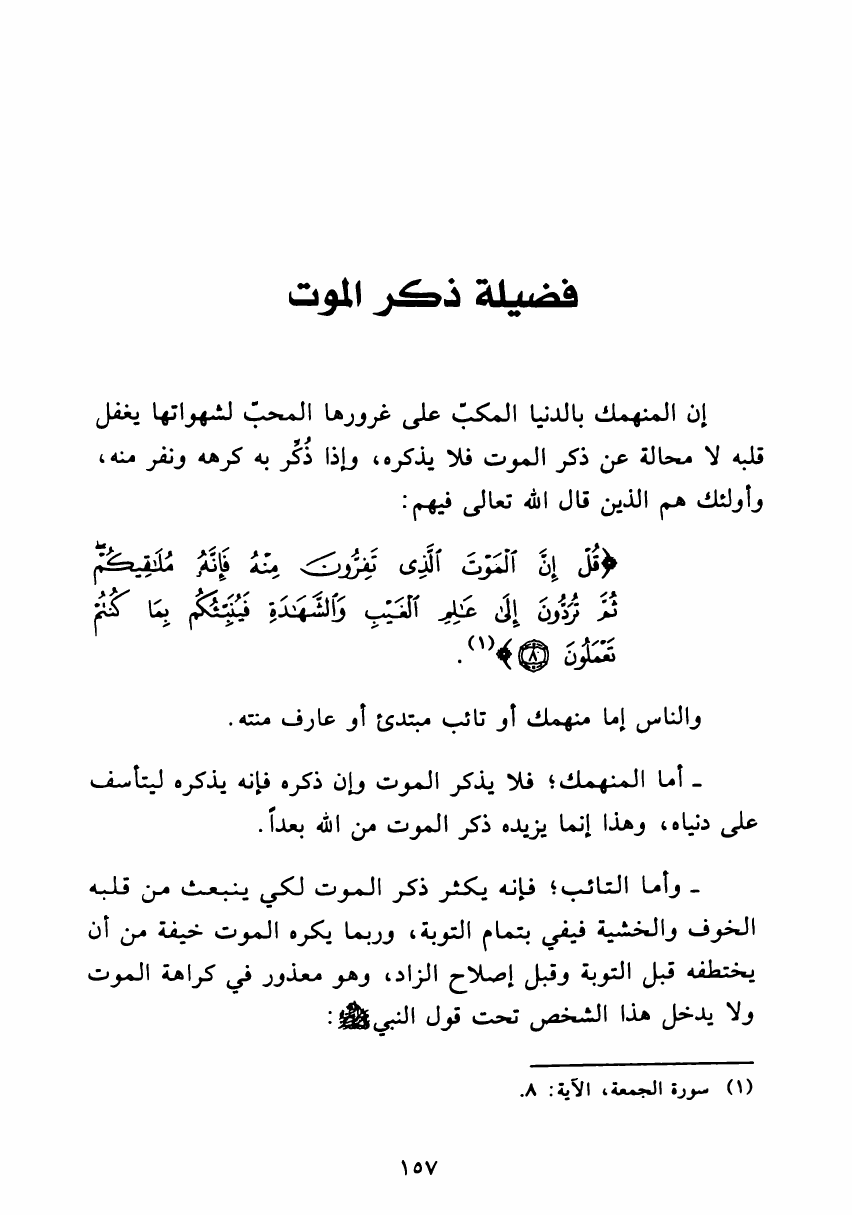 فضيلة ذكر الموت
إن المنهمك بالدنيا المكبّ على غرورها المحبّ لشهواتها يغفل
قلبه لا محالة عن ذكر الموت فلا يذكره، وإذا ذُكِّر به كرهه ونفر منه،
وأولئك هم الذين قال الله تعالى فيهم:
﴿قُلْ إِنَّ ٱلْمَوْتَ ٱلَّذِى تَفِرُّونَ مِنْهُ فَإِنَّهُۥ مُلَـٰقِيكُمْ ۖ
ثُمَّ تُرَدُّونَ إِلَىٰ عَـٰلِمِ ٱلْغَيْبِ وَٱلشَّهَـٰدَةِ فَيُنَبِّئُكُم بِمَا كُنتُمْ
تَعْمَلُونَ ۝٨﴾(١).
والناس إما منهمك أو تائب مبتدئ أو عارف منته.
ـ أما المنهمك؛ فلا يذكر الموت وإن ذكره فإنه يذكره ليتأسف
على دنياه، وهذا إنما يزيده ذكر الموت من الله بعداً.
ـ وأما التائب؛ فإنه يكثر ذكر الموت لكي ينبعث من قلبه
الخوف والخشية فيفي بتمام التوبة، وربما يكره الموت خيفة من أن
يختطفه قبل التوبة وقبل إصلاح الزاد، وهو معذور في كراهة الموت
ولا يدخل هذا الشخص تحت قول النبي ﷺ:
(١) سورة الجمعة، الآية: ٨.
١٥٧